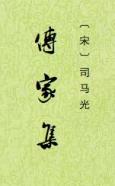 〔宋〕司马光
傳家集